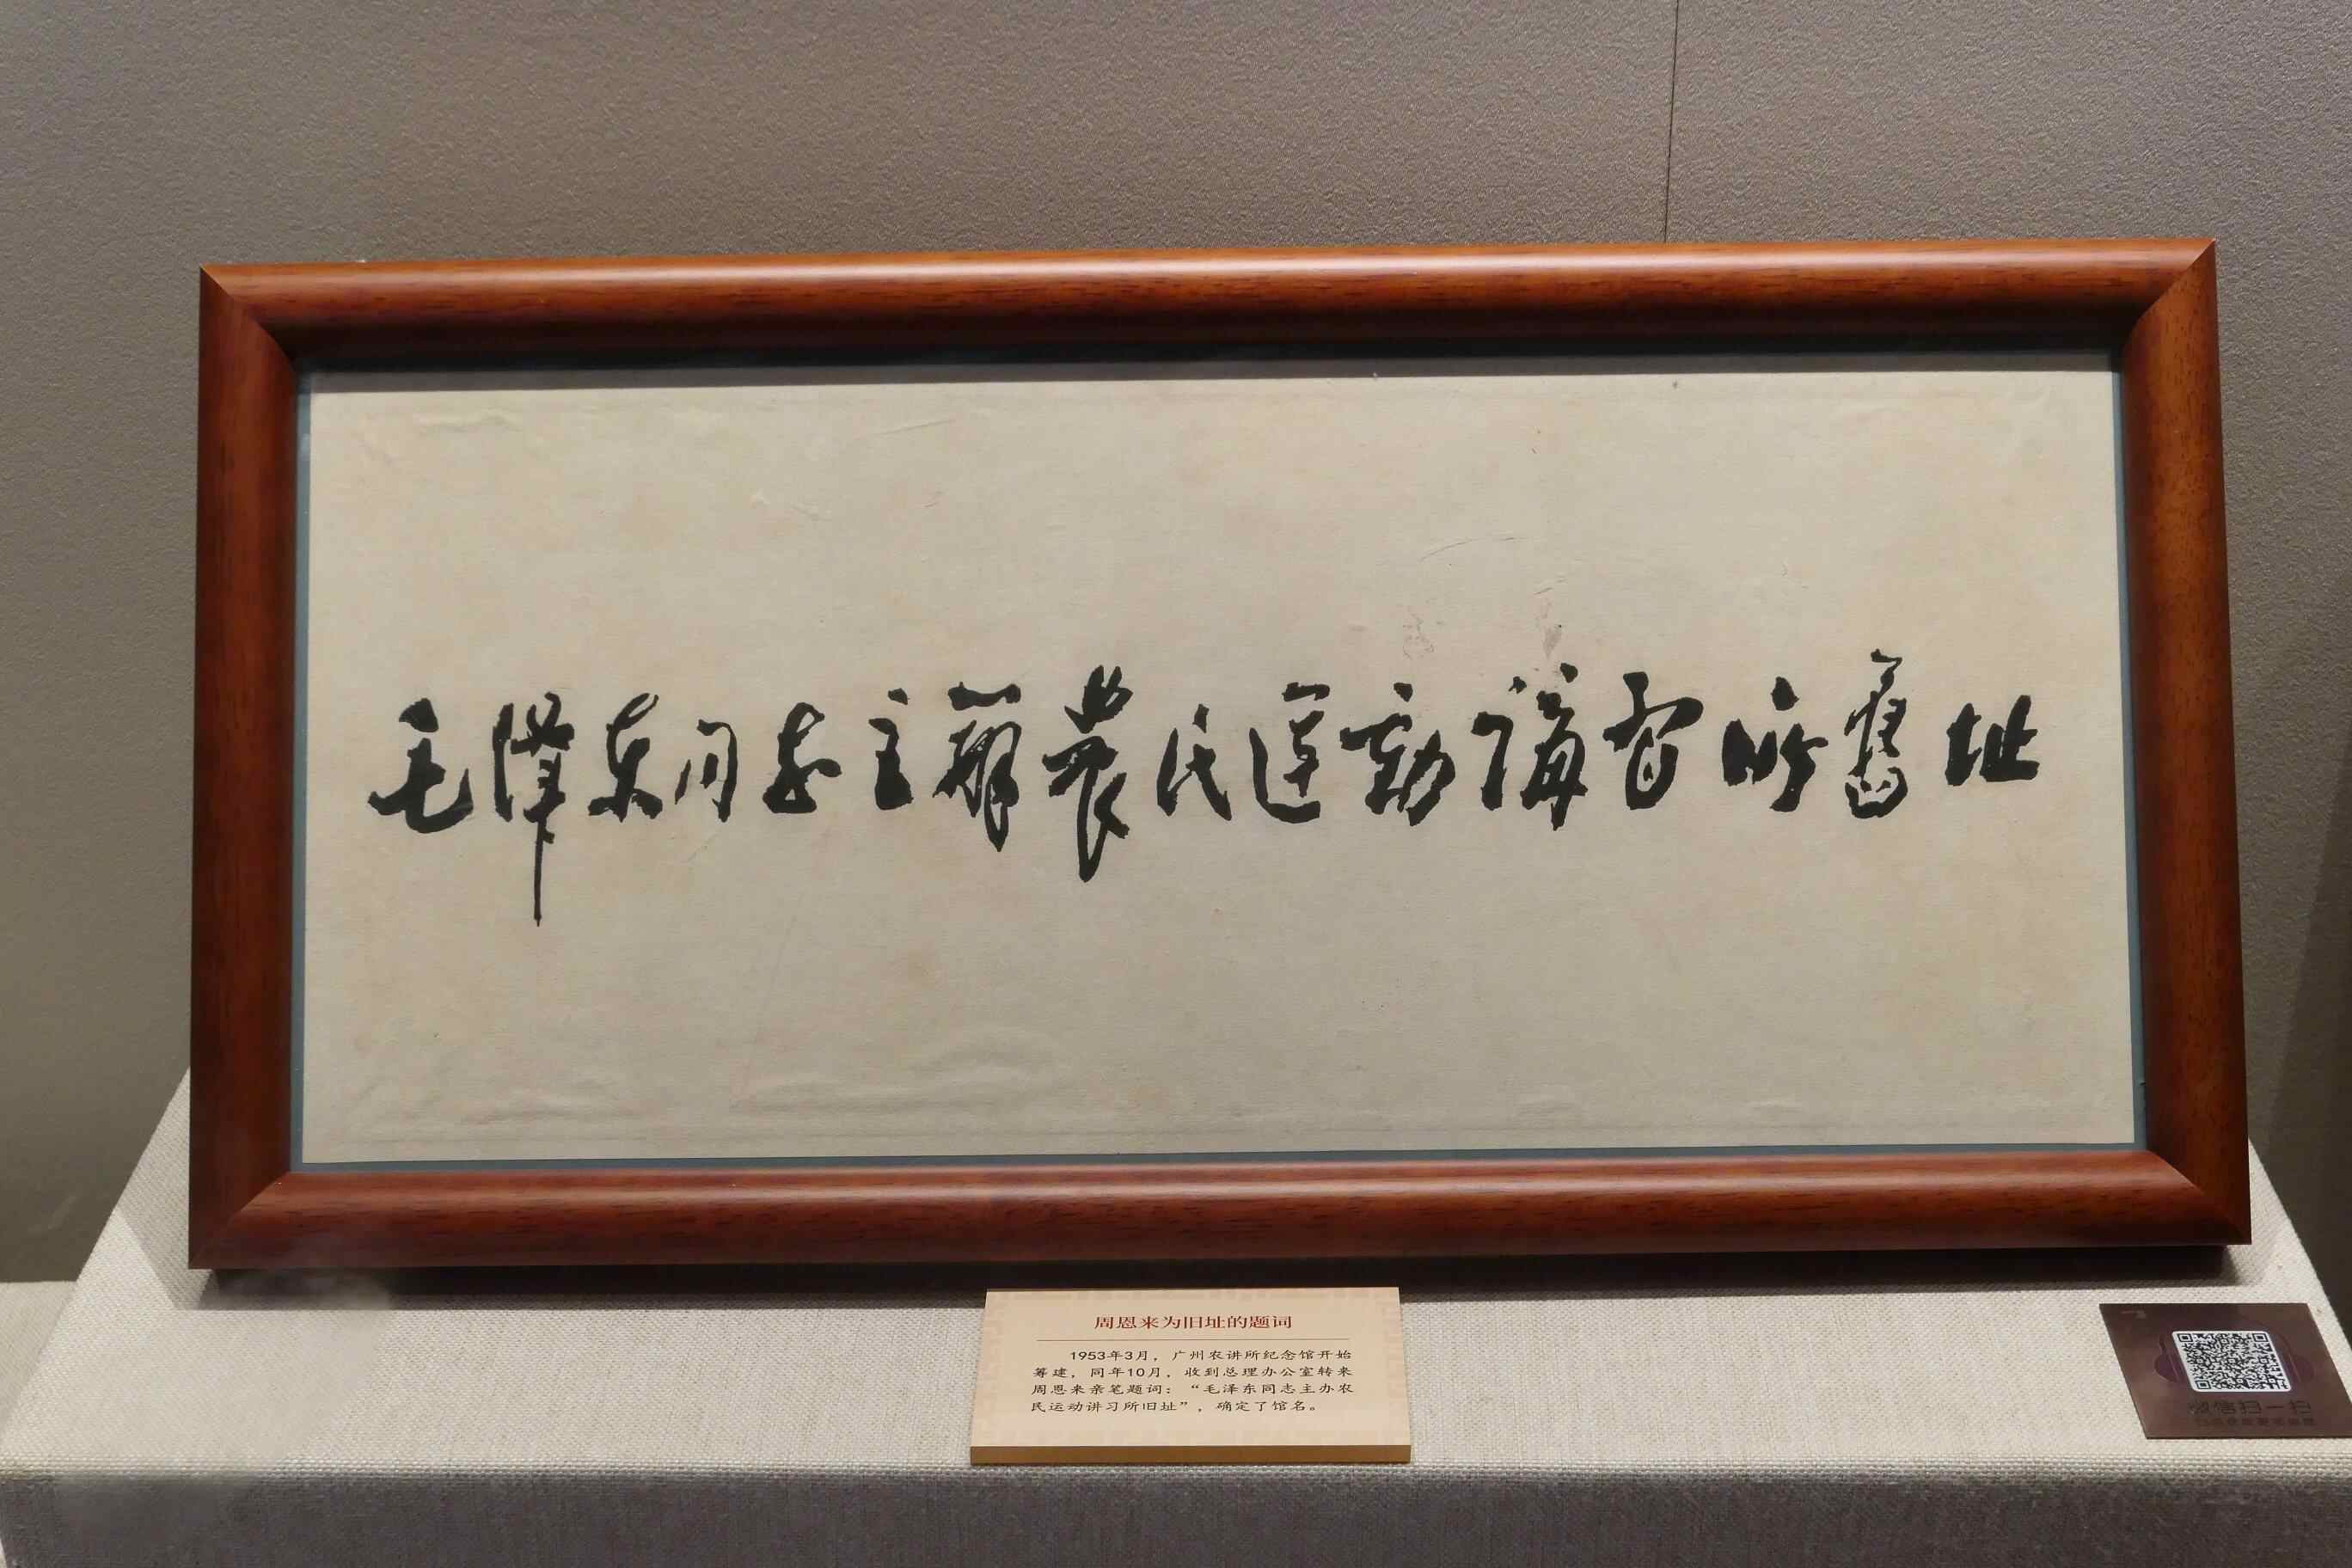 毛澤东同志主辦農民運動講習所舊址
周恩来为旧址的题词
1953年3月，广州农讲所纪念馆开始
筹建，同年10月，收到总理办公室转来
周恩来亲笔题词：“毛泽东同志主办农
民运动讲习所旧址”，确定了馆名。
微信扫一扫